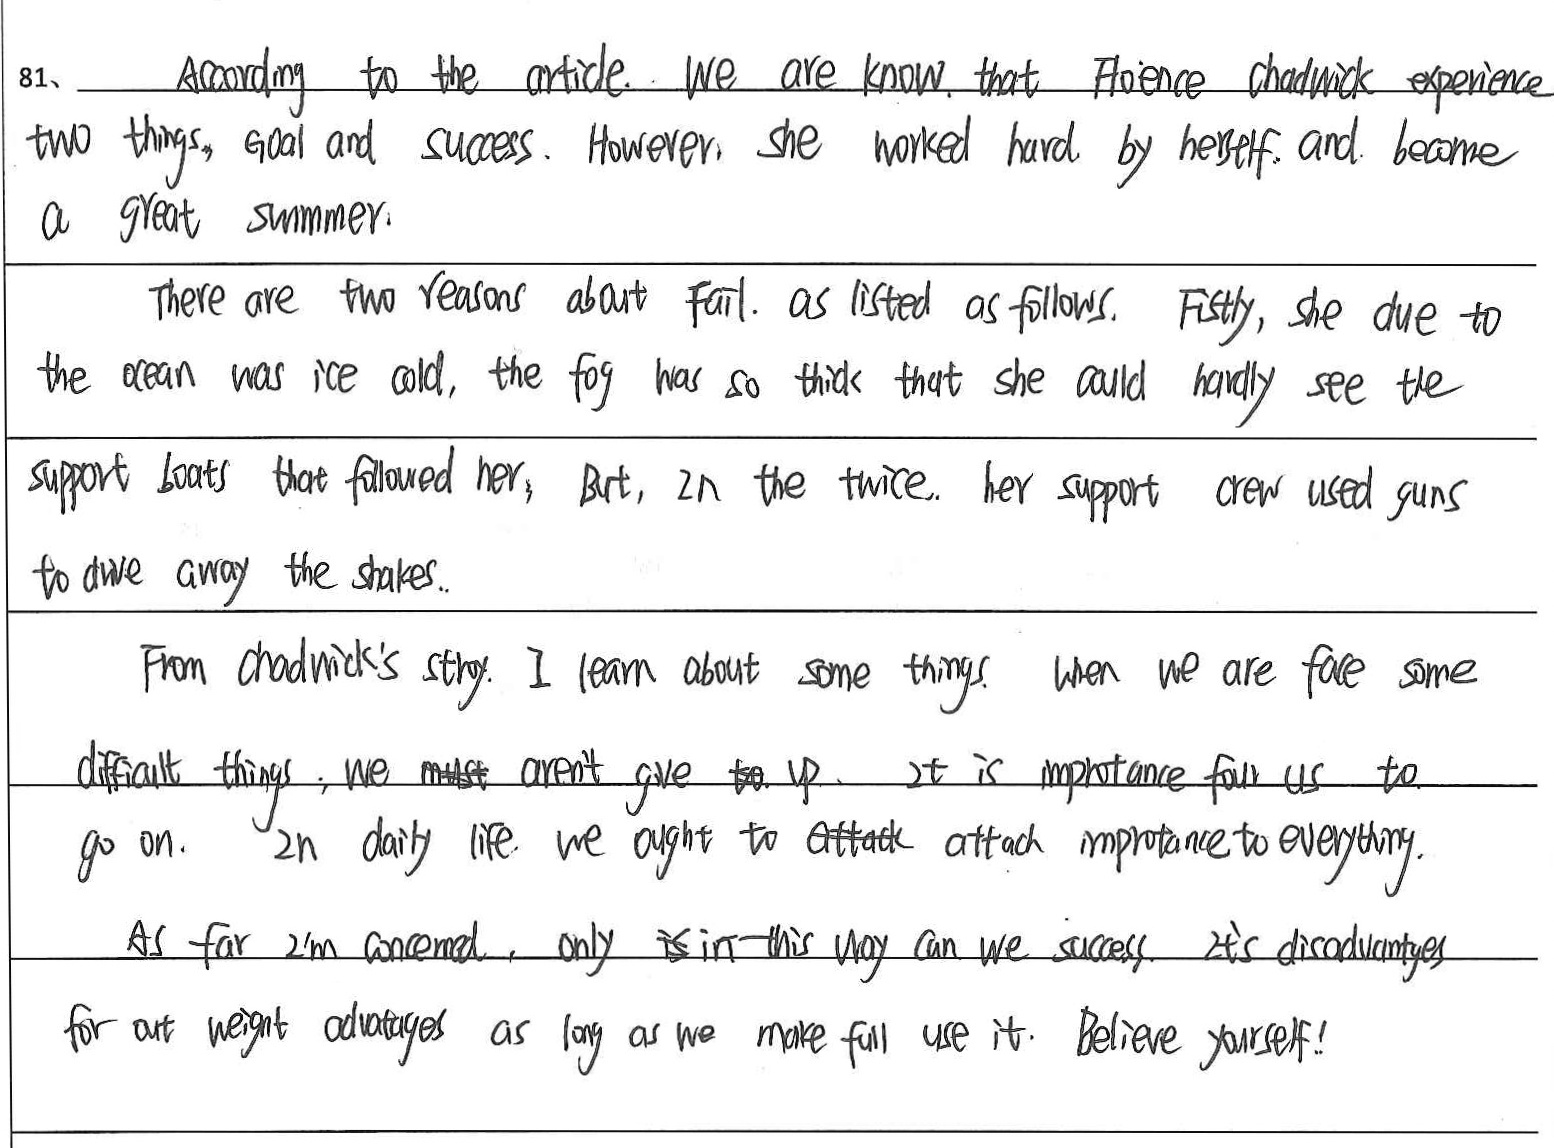 81、 According to the article. We are know. that Floience Chadwick experience
two things,, Goal and success. However, she worked hard. by herself. and. become
a great swmmer.
There are two reasons about Fail. as listed as follows. Fistly, she due to
the ocean was ice cold, the fog was so thick that she could hardly see the
support boats that followed her; But, In the twice. her support crew used guns
to dive away the shakes..
From Chadwick's stroy. I learn about some things. When we are face some
difficult things, we must aren't give to up. It is improtance four us to
go on. In daily life. we ought to attack attach improtance to everything.
As far I'm concerned, only is in this way can we success. It's disadvantges
for out weight advatages as long as we make full use it. Believe yourself!